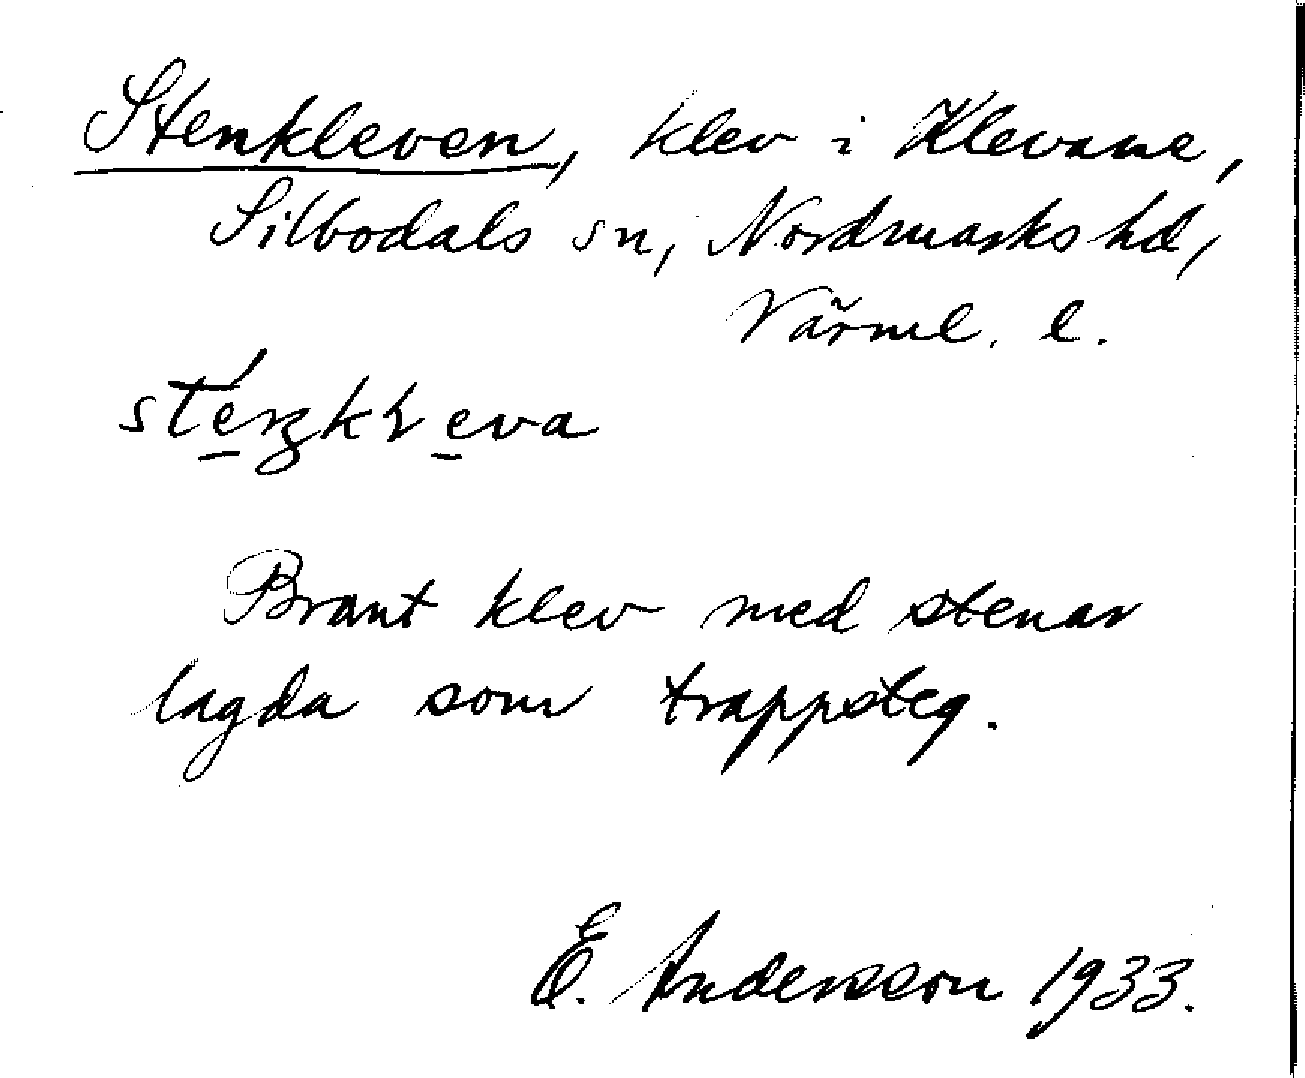 Stenkleven, klev i Klevane,
Silbodals sn, Nordmarks hd,
Värml. l.
Brant klev med stenar
lagda som trappsteg.
E. Andersson 1933.